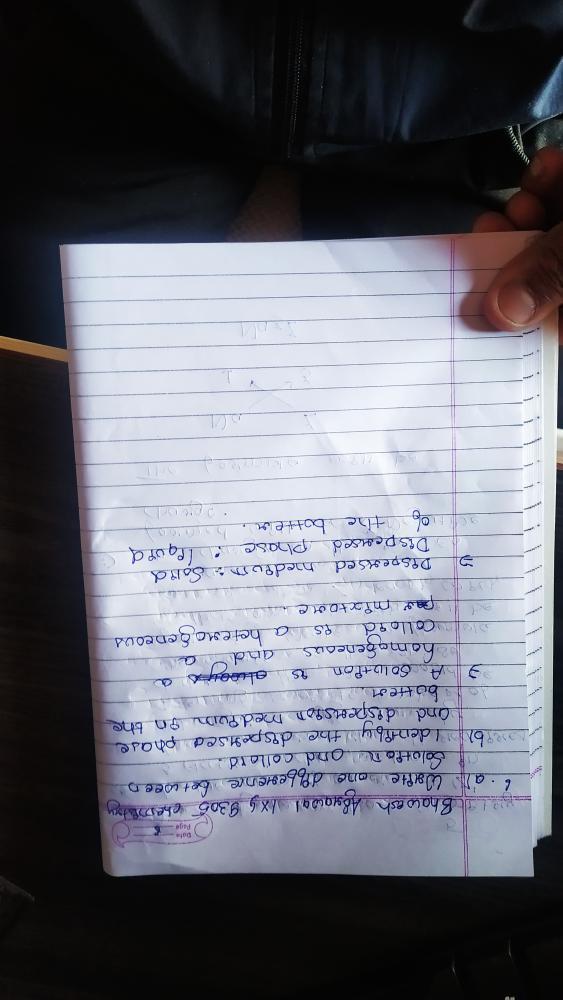 Date
Page 8
Bhawesh Agrawal IX G 9305 chemistry
6. a) Write one difference between
Solution and colloid.
b) Identify the dispersed phase
and dispersion medium in the
butter.
→ A solution is always a
homogeneous and a
colloid is a heterogeneous
mixture.
→ Dispersed medium: Solid
Dispersed phase: liquid
of the butter.